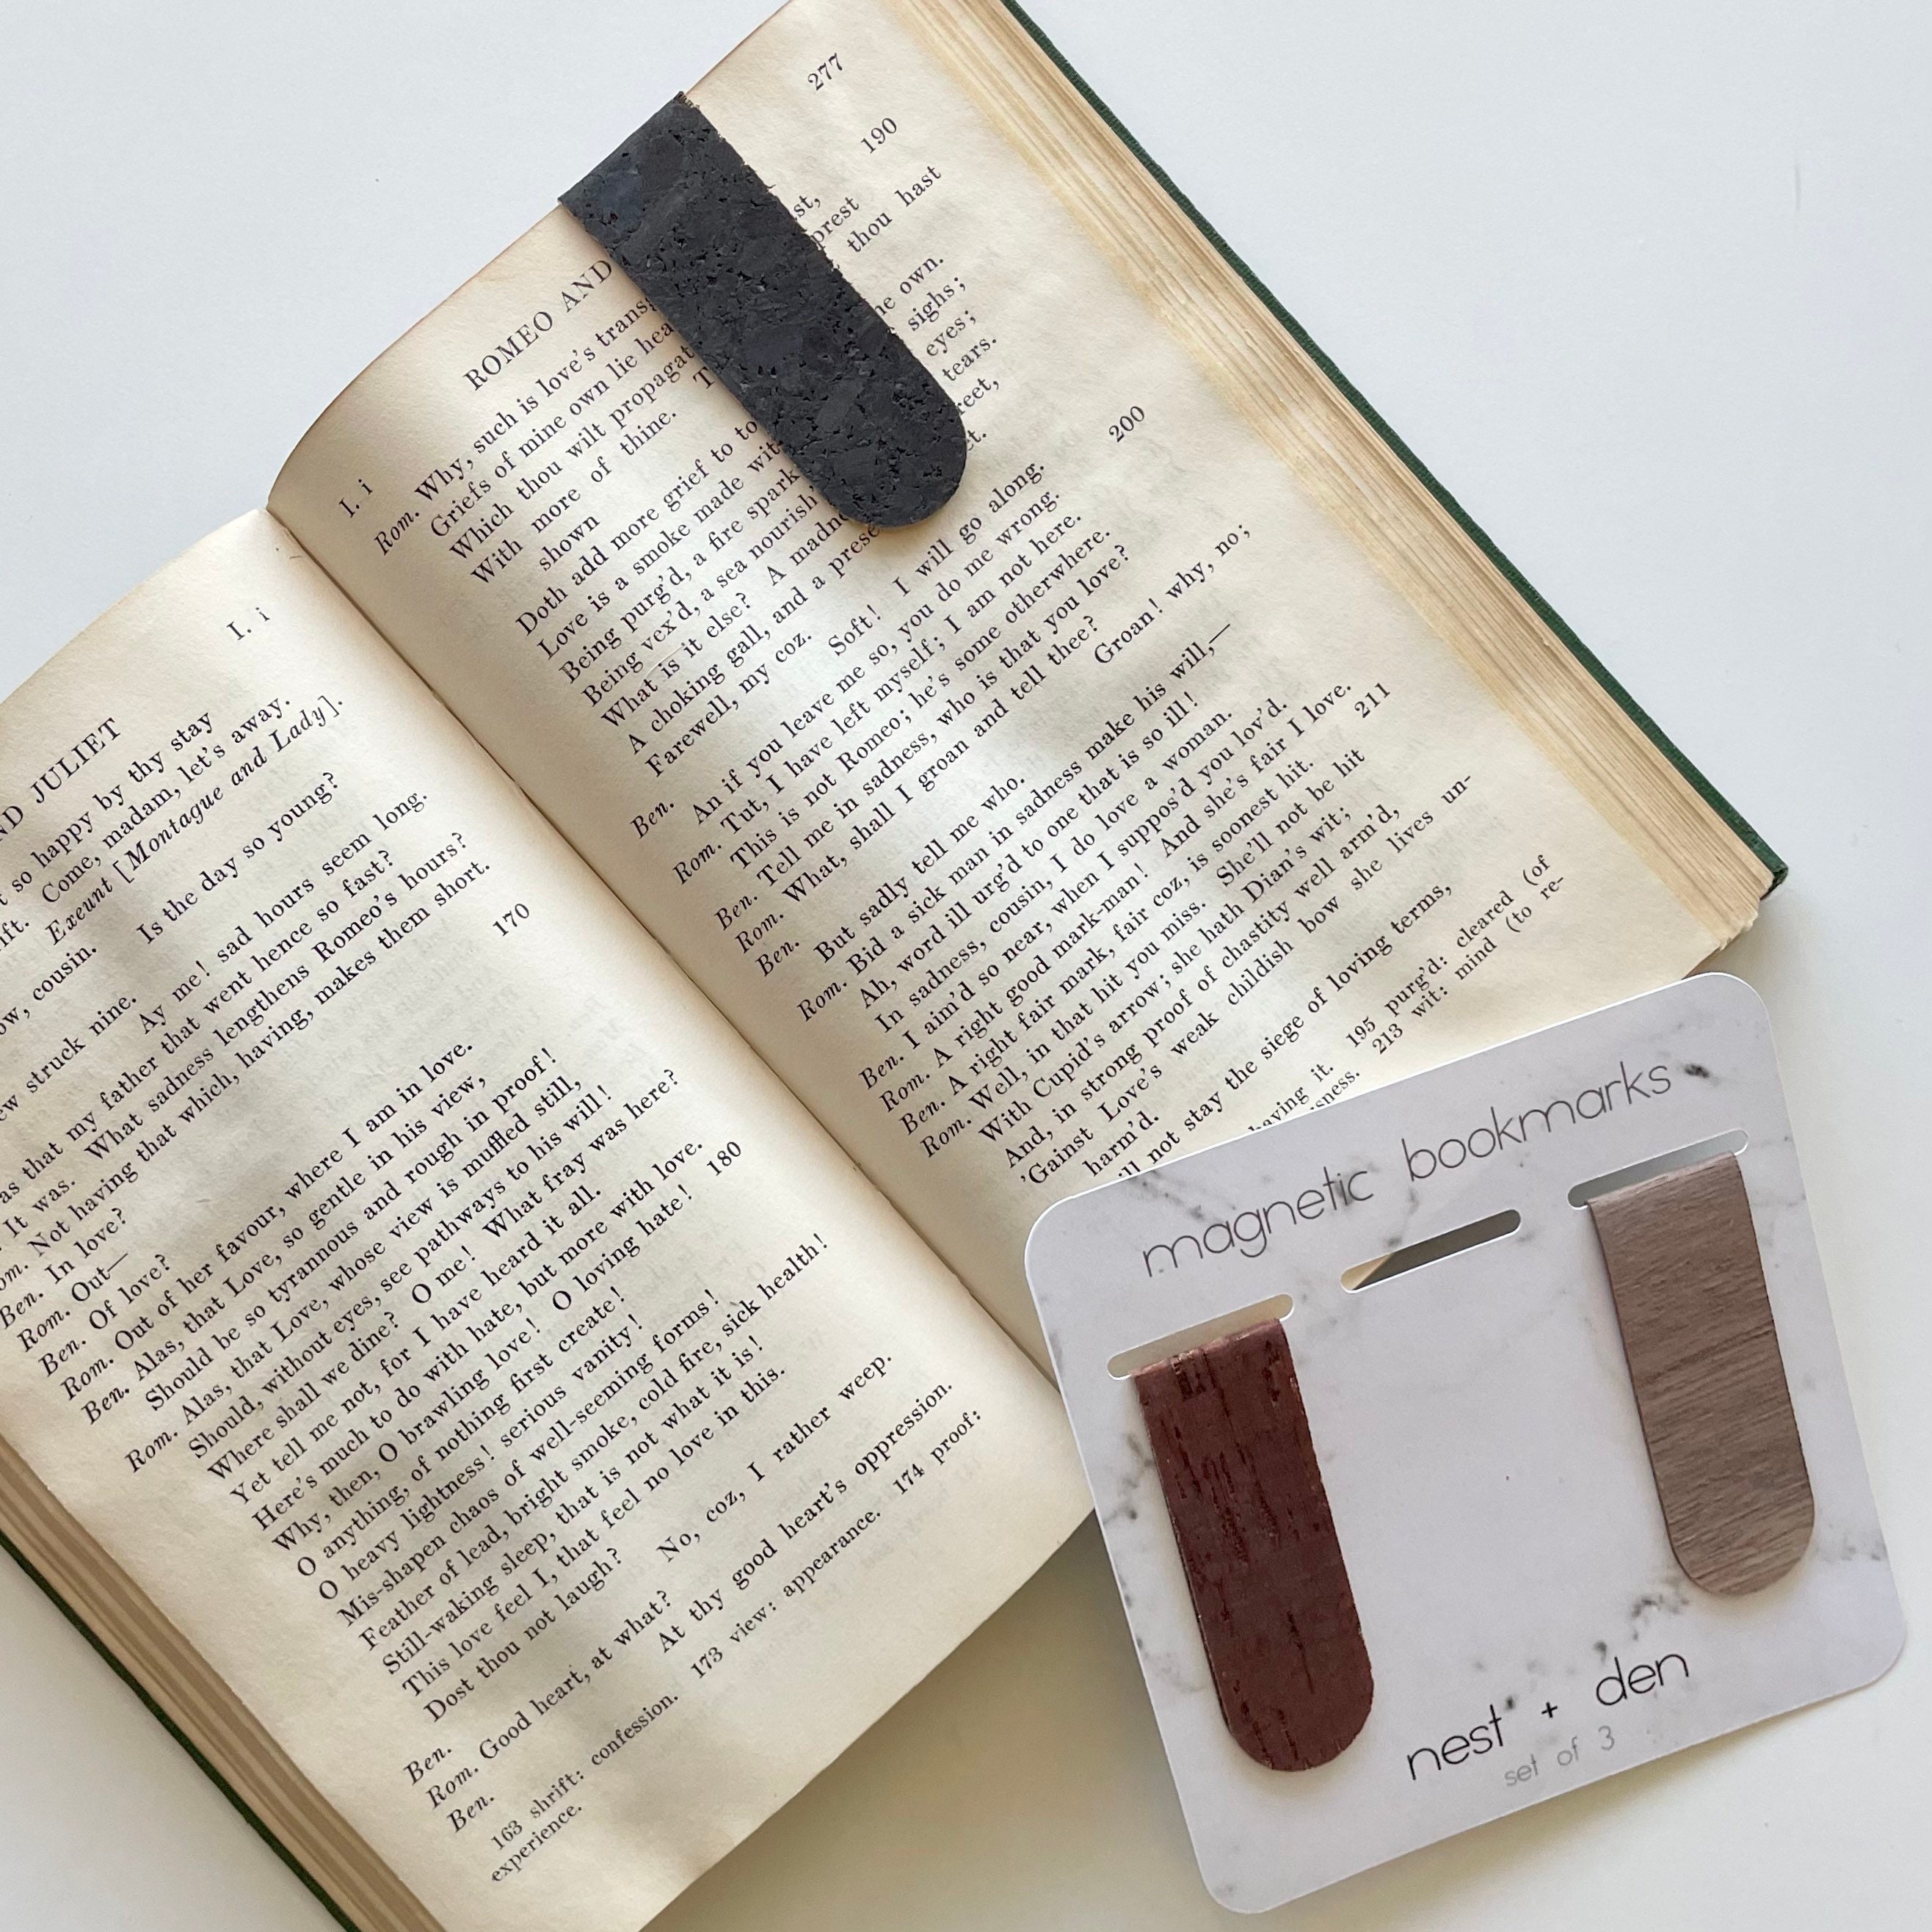 ND JULIET
I. i
so happy by thy stay
Come, madam, let's away.
Exeunt [Montague and Lady].
cousin. Is the day so young?
struck nine.
Ay me! sad hours seem long.
that my father that went hence so fast?
It was. What sadness lengthens Romeo's hours?
Not having that which, having, makes them short.
Ben. In love?
170
Rom. Out—
Ben. Of love?
Rom. Out of her favour, where I am in love.
Ben. Alas, that Love, so gentle in his view,
Should be so tyrannous and rough in proof!
Rom. Alas, that Love, whose view is muffled still,
Should, without eyes, see pathways to his will!
Where shall we dine? O me! What fray was here?
Yet tell me not, for I have heard it all.
Here's much to do with hate, but more with love.
Why, then, O brawling love! O loving hate! 180
O anything, of nothing first create!
O heavy lightness! serious vanity!
Mis-shapen chaos of well-seeming forms!
Feather of lead, bright smoke, cold fire, sick health!
Still-waking sleep, that is not what it is!
This love feel I, that feel no love in this.
Dost thou not laugh?
Ben. No, coz, I rather weep.
Rom. Good heart, at what?
Ben. At thy good heart's oppression.
163 shrift: confession. 173 view: appearance. 174 proof:
experience.
I. i
ROMEO AND
277
Rom. Why, such is love's
Griefs of mine own lie
190
Which thou wilt
With more of thine. thou hast
shown
Doth add more grief to own.
Love is a smoke made sighs;
Being purg'd, a fire eyes;
Being vex'd, a sea tears.
What is it else? A
A choking gall, and a
Farewell, my coz.
Ben. Soft! I will go along. 200
An if you leave me so, you do me wrong.
Rom. Tut, I have left myself; I am not here.
This is not Romeo; he's some otherwhere.
Ben. Tell me in sadness, who is that you love?
Rom. What, shall I groan and tell thee?
Ben. Groan! why, no;
But sadly tell me who.
Rom. Bid a sick man in sadness make his will,—
Ah, word ill urg'd to one that is so ill!
In sadness, cousin, I do love a woman.
Ben. I aim'd so near, when I suppos'd you lov'd.
Rom. A right good mark-man! And she's fair I love.
Ben. A right fair mark, fair coz, is soonest hit. 211
Rom. Well, in that hit you miss. She'll not be hit
With Cupid's arrow; she hath Dian's wit;
And, in strong proof of chastity well arm'd,
'Gainst Love's weak childish bow she lives un-
harm'd.
not stay the siege of loving terms,
having it. 195 purg'd: cleared (of
213 wit: mind (to re-
magnetic bookmarks
nest + den
set of 3